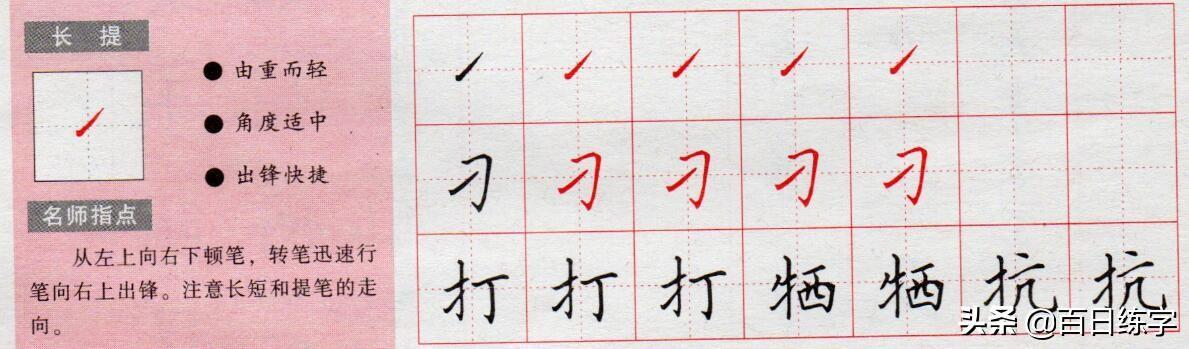 长 提
由重而轻
角度适中
出锋快捷
名师指点
从左上向右下顿笔，转笔迅速行
笔向右上出锋。注意长短和提笔的走
向。
刁 刁 刁 刁 刁
打 打 打 牺 牺 抗 抗
头条 @百日练字